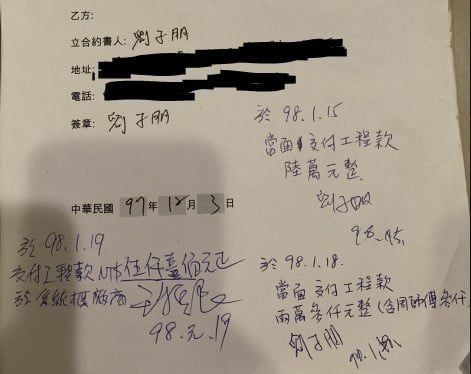 乙方:
立合約書人: 劉子朋
地址:
電話:
簽章: 劉子朋
中華民國 97年 12月 3日
於 98.1.15
當面交付工程款
陸萬元整
劉子朋
98.1.15.
於 98.1.18.
當面交付工程款
兩萬參仟元整(含周師傅參仟
劉子朋
於 98.1.19
交付工程款NT$伍仟壹佰元正
於系統櫃廠商
98.元.19